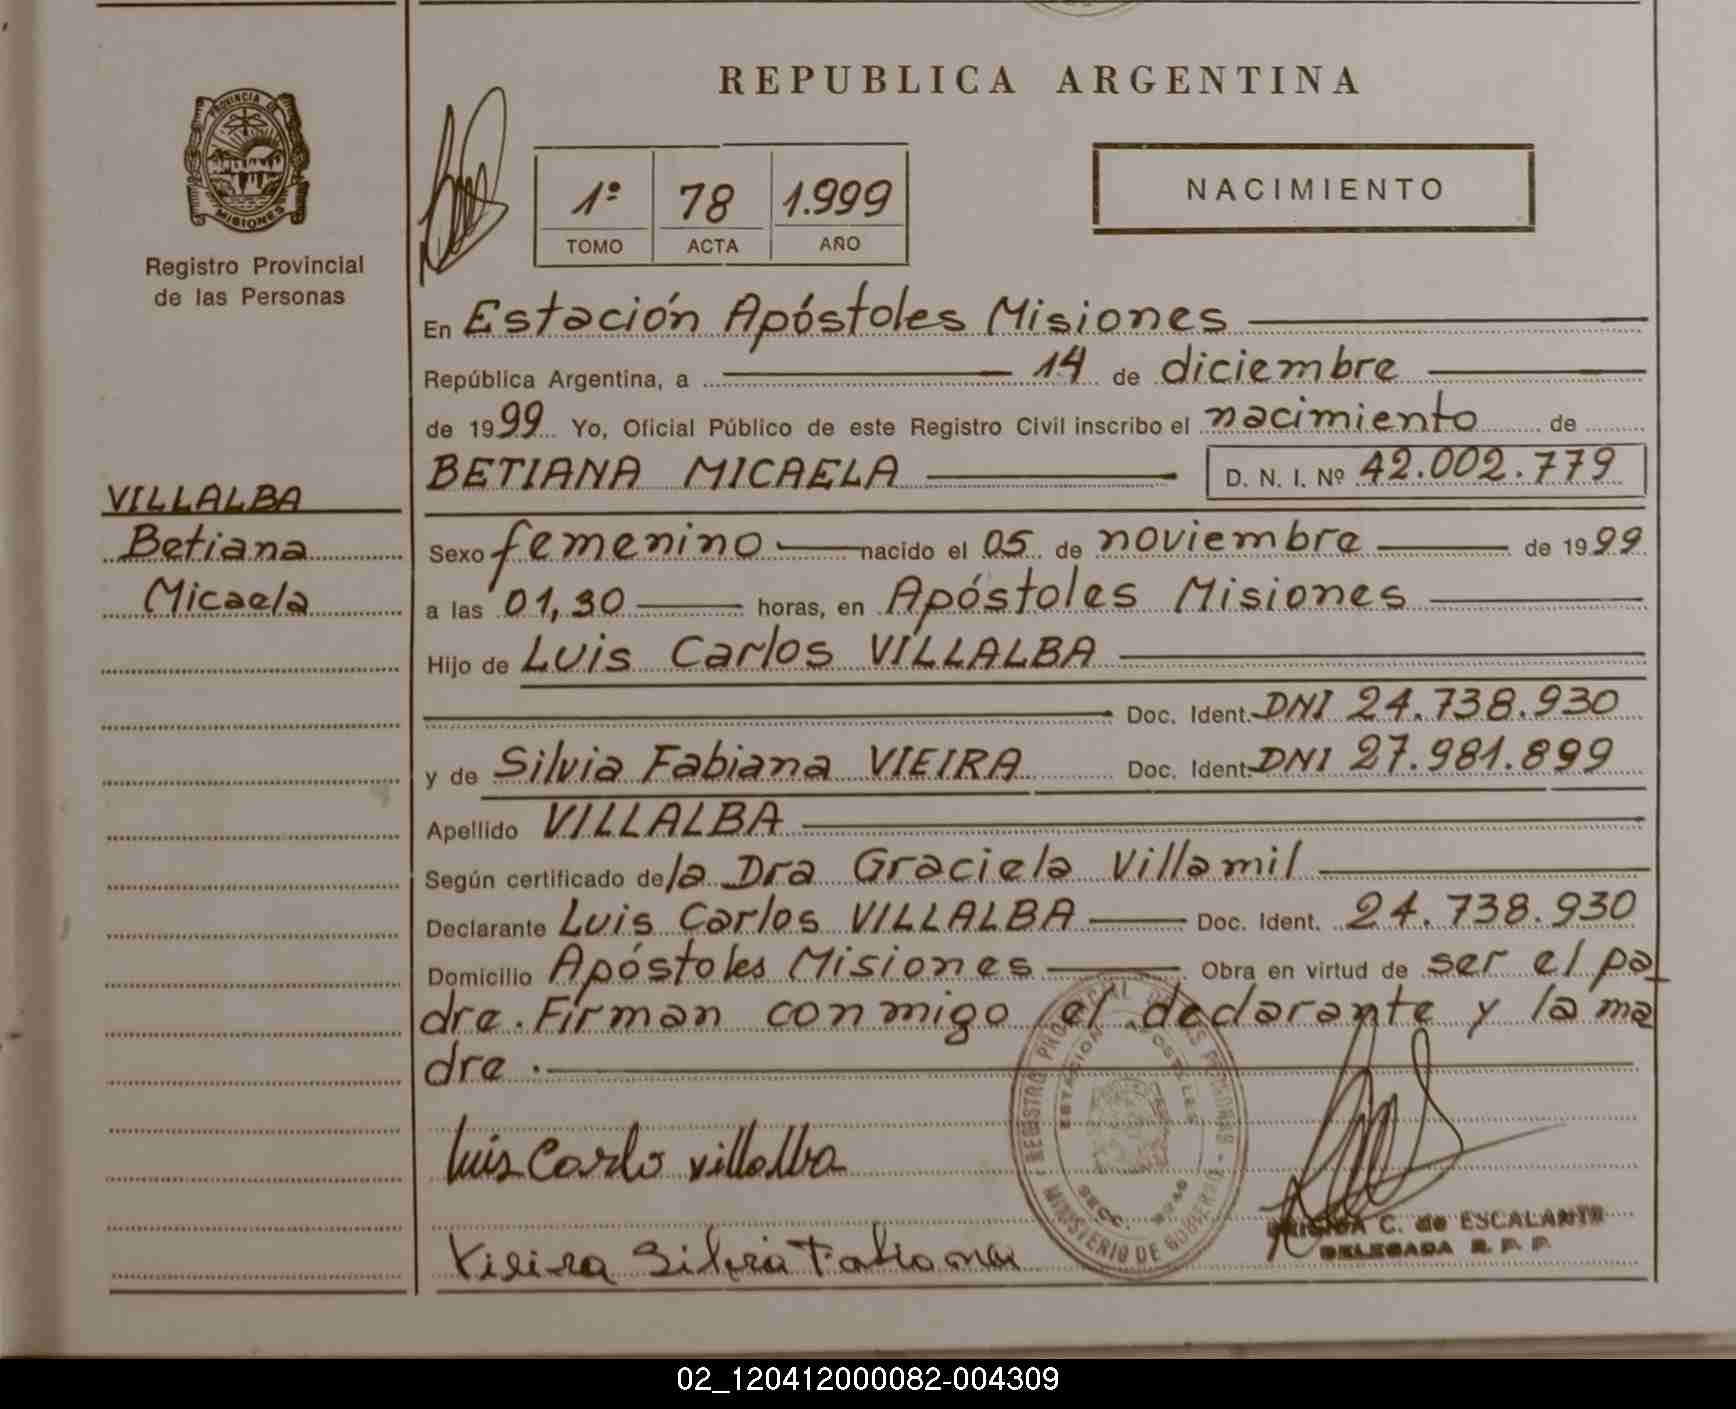 REPUBLICA ARGENTINA
PROVINCIA DE
MISIONES
Registro Provincial
de las Personas
1º 78 1.999
TOMO ACTA AÑO
NACIMIENTO
En Estación Apóstoles Misiones
República Argentina, a 14 de diciembre
de 1999 Yo, Oficial Público de este Registro Civil inscribo el nacimiento de
BETIANA MICAELA D. N. I. Nº 42.002.779
VILLALBA
Betiana
Micaela
Sexo femenino nacido el 05 de noviembre de 1999
a las 01,30 horas, en Apóstoles Misiones
Hijo de Luis Carlos VILLALBA
Doc. Ident. DNI 24.738.930
y de Silvia Fabiana VIEIRA Doc. Ident. DNI 27.981.899
Apellido VILLALBA
Según certificado de la Dra Graciela Villamil
Declarante Luis Carlos VILLALBA Doc. Ident. 24.738.930
Domicilio Apóstoles Misiones Obra en virtud de ser el pa
dre. Firman conmigo el declarante y la ma
dre.
Luis Carlo villalba
Vieira Silvia Fabiana
REGISTRO PROVINCIAL DE LAS PERSONAS - MINISTERIO DE GOBIERNO
ESTACION APOSTOLES
SECC.
C. de ESCALANTE
DELEGADA R. P. P.
02_120412000082-004309